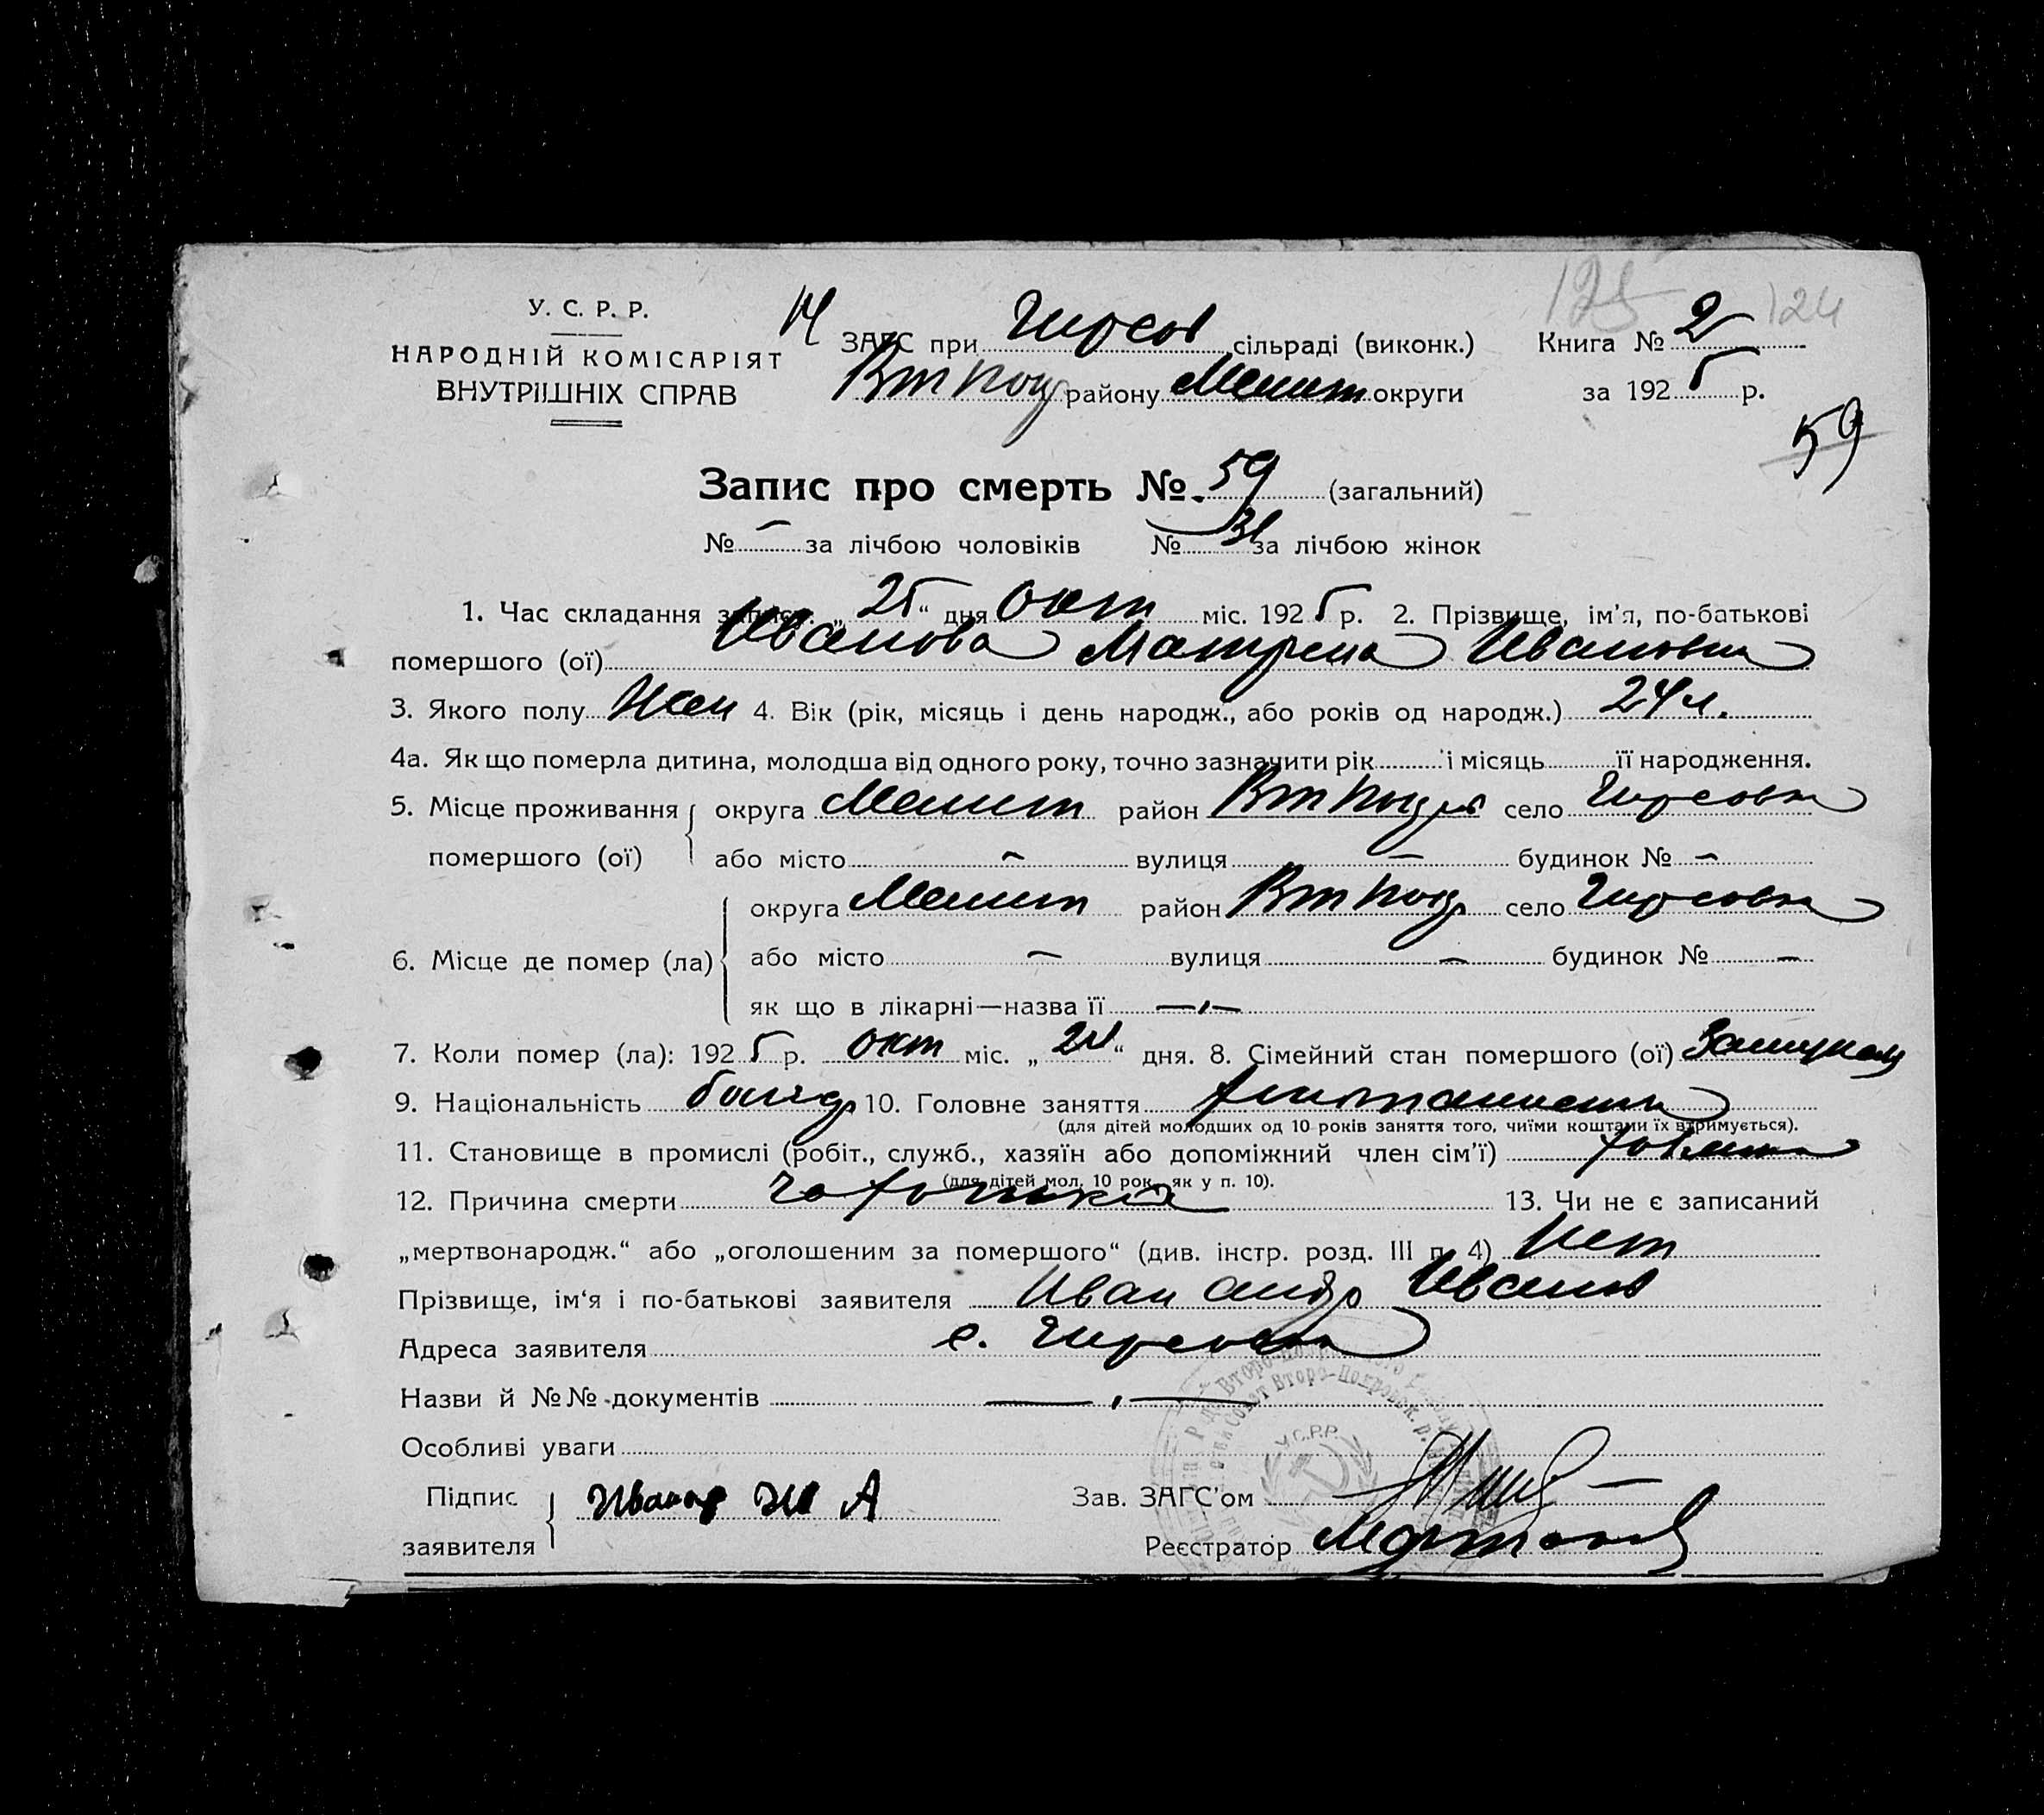 125 124
У. С. Р. Р.
НАРОДНІЙ КОМІСАРІЯТ
ВНУТРІШНІХ СПРАВ
ЗАГС при Гирсов сільраді (виконк.)
Вт Покр району Мелит округи
Книга № 2
за 1925 р.
59
Запис про смерть № 59 (загальний)
№ – за лічбою чоловіків № 31 за лічбою жінок
1. Час складання запису. „25“ дня Окт міс. 1925 р. 2. Прізвище, ім’я, по-батькові
помершого (ої) Иванова Матрена Ивановна
3. Якого полу Жен 4. Вік (рік, місяць і день народж., або років од народж.) 24 л.
4а. Як що померла дитина, молодша від одного року, точно зазначити рік і місяць її народження.
5. Місце проживання помершого (ої) округа Мелит район Вт Покр село Гирсовка
або місто – вулиця – будинок № –
6. Місце де помер (ла) округа Мелит район Вт Покр село Гирсовка
або місто – вулиця – будинок № –
як що в лікарні—назва її —„—
7. Коли помер (ла): 1925 р. окт міс. „24“ дня. 8. Сімейний стан помершого (ої) Замужем
9. Національність болгар 10. Головне заняття
(для дітей молодших од 10 років заняття того, чиїми коштами їх втримується).
11. Становище в промислі (робіт., служб., хазяїн або допоміжний член сім’ї)
(для дітей мол. 10 рок. як у п. 10).
12. Причина смерти Чахотка 13. Чи не є записаний
„мертвонародж.“ або „оголошеним за помершого“ (див. інстр. розд. III п. 4) Нет
Прізвище, ім‘я і по-батькові заявителя Иван Андр Иванов
Адреса заявителя с. Гирсовка
Назви й №№ документів —„—
Особливі уваги
Підпис заявителя Иванов И А
Зав. ЗАГС’ом
Реєстратор
У.С.Р.Р.